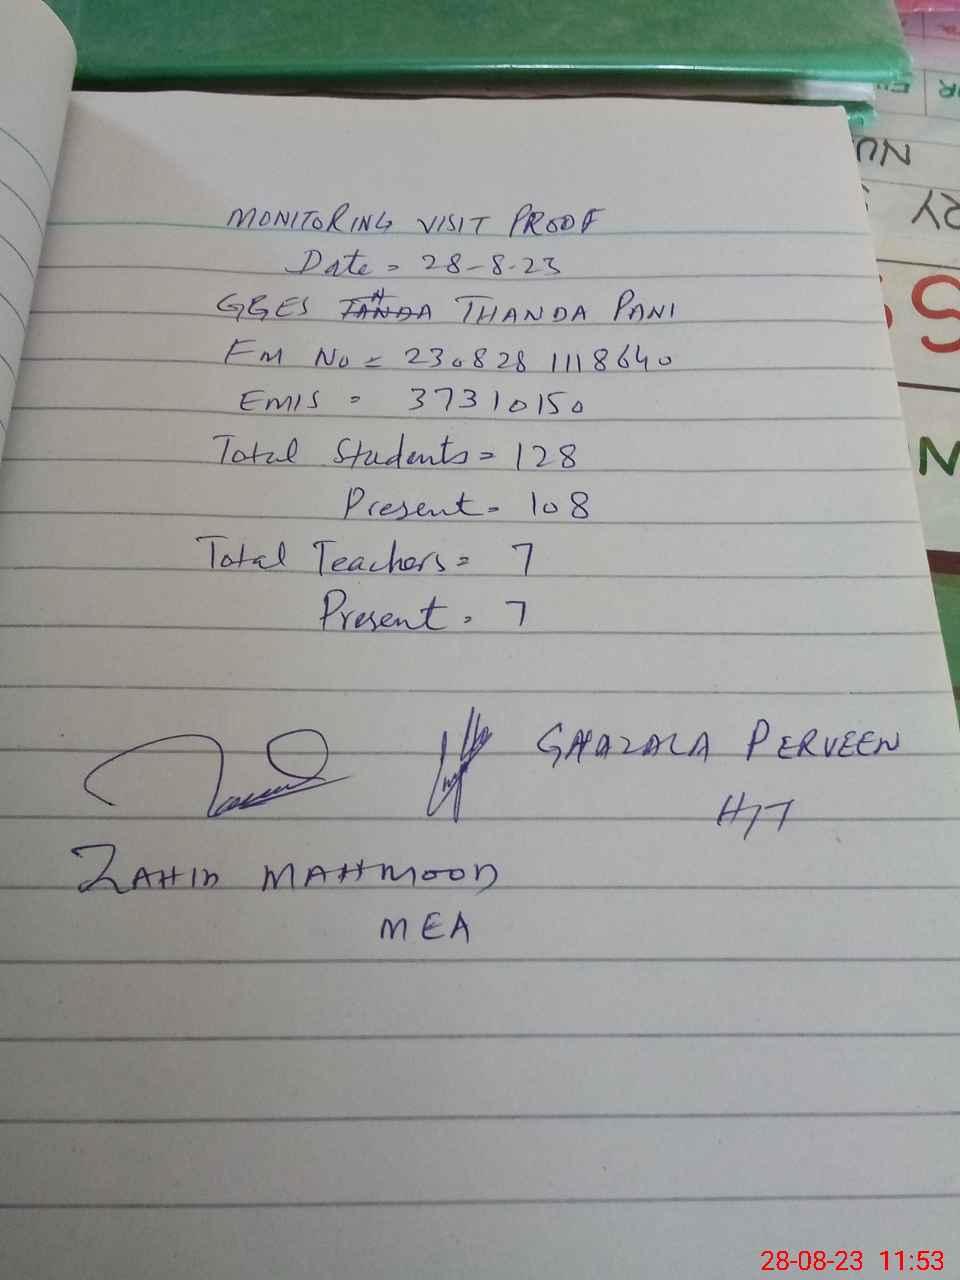 MONITORING VISIT PROOF
Date = 28-8-23
GGES THANDA PANI
EM No = 230828 1118640
EMIS = 37310150
Total Students = 128
Present = 108
Total Teachers = 7
Present = 7
GHAZALA PERVEEN
H/T
ZAHID MAHMOOD
MEA
NU
RY
S
N
28-08-23 11:53